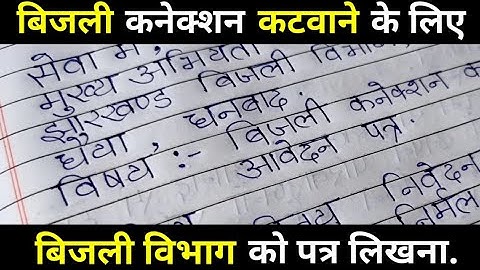 बिजली कनेक्शन कटवाने के लिए
सेवा में
मुख्य अभियंता
झारखण्ड बिजली विभाग
धैया, धनबाद.
विषय :- बिजली कनेक्शन
आवेदन पत्र.
निवेदन
निर्मल
बिजली विभाग को पत्र लिखना.